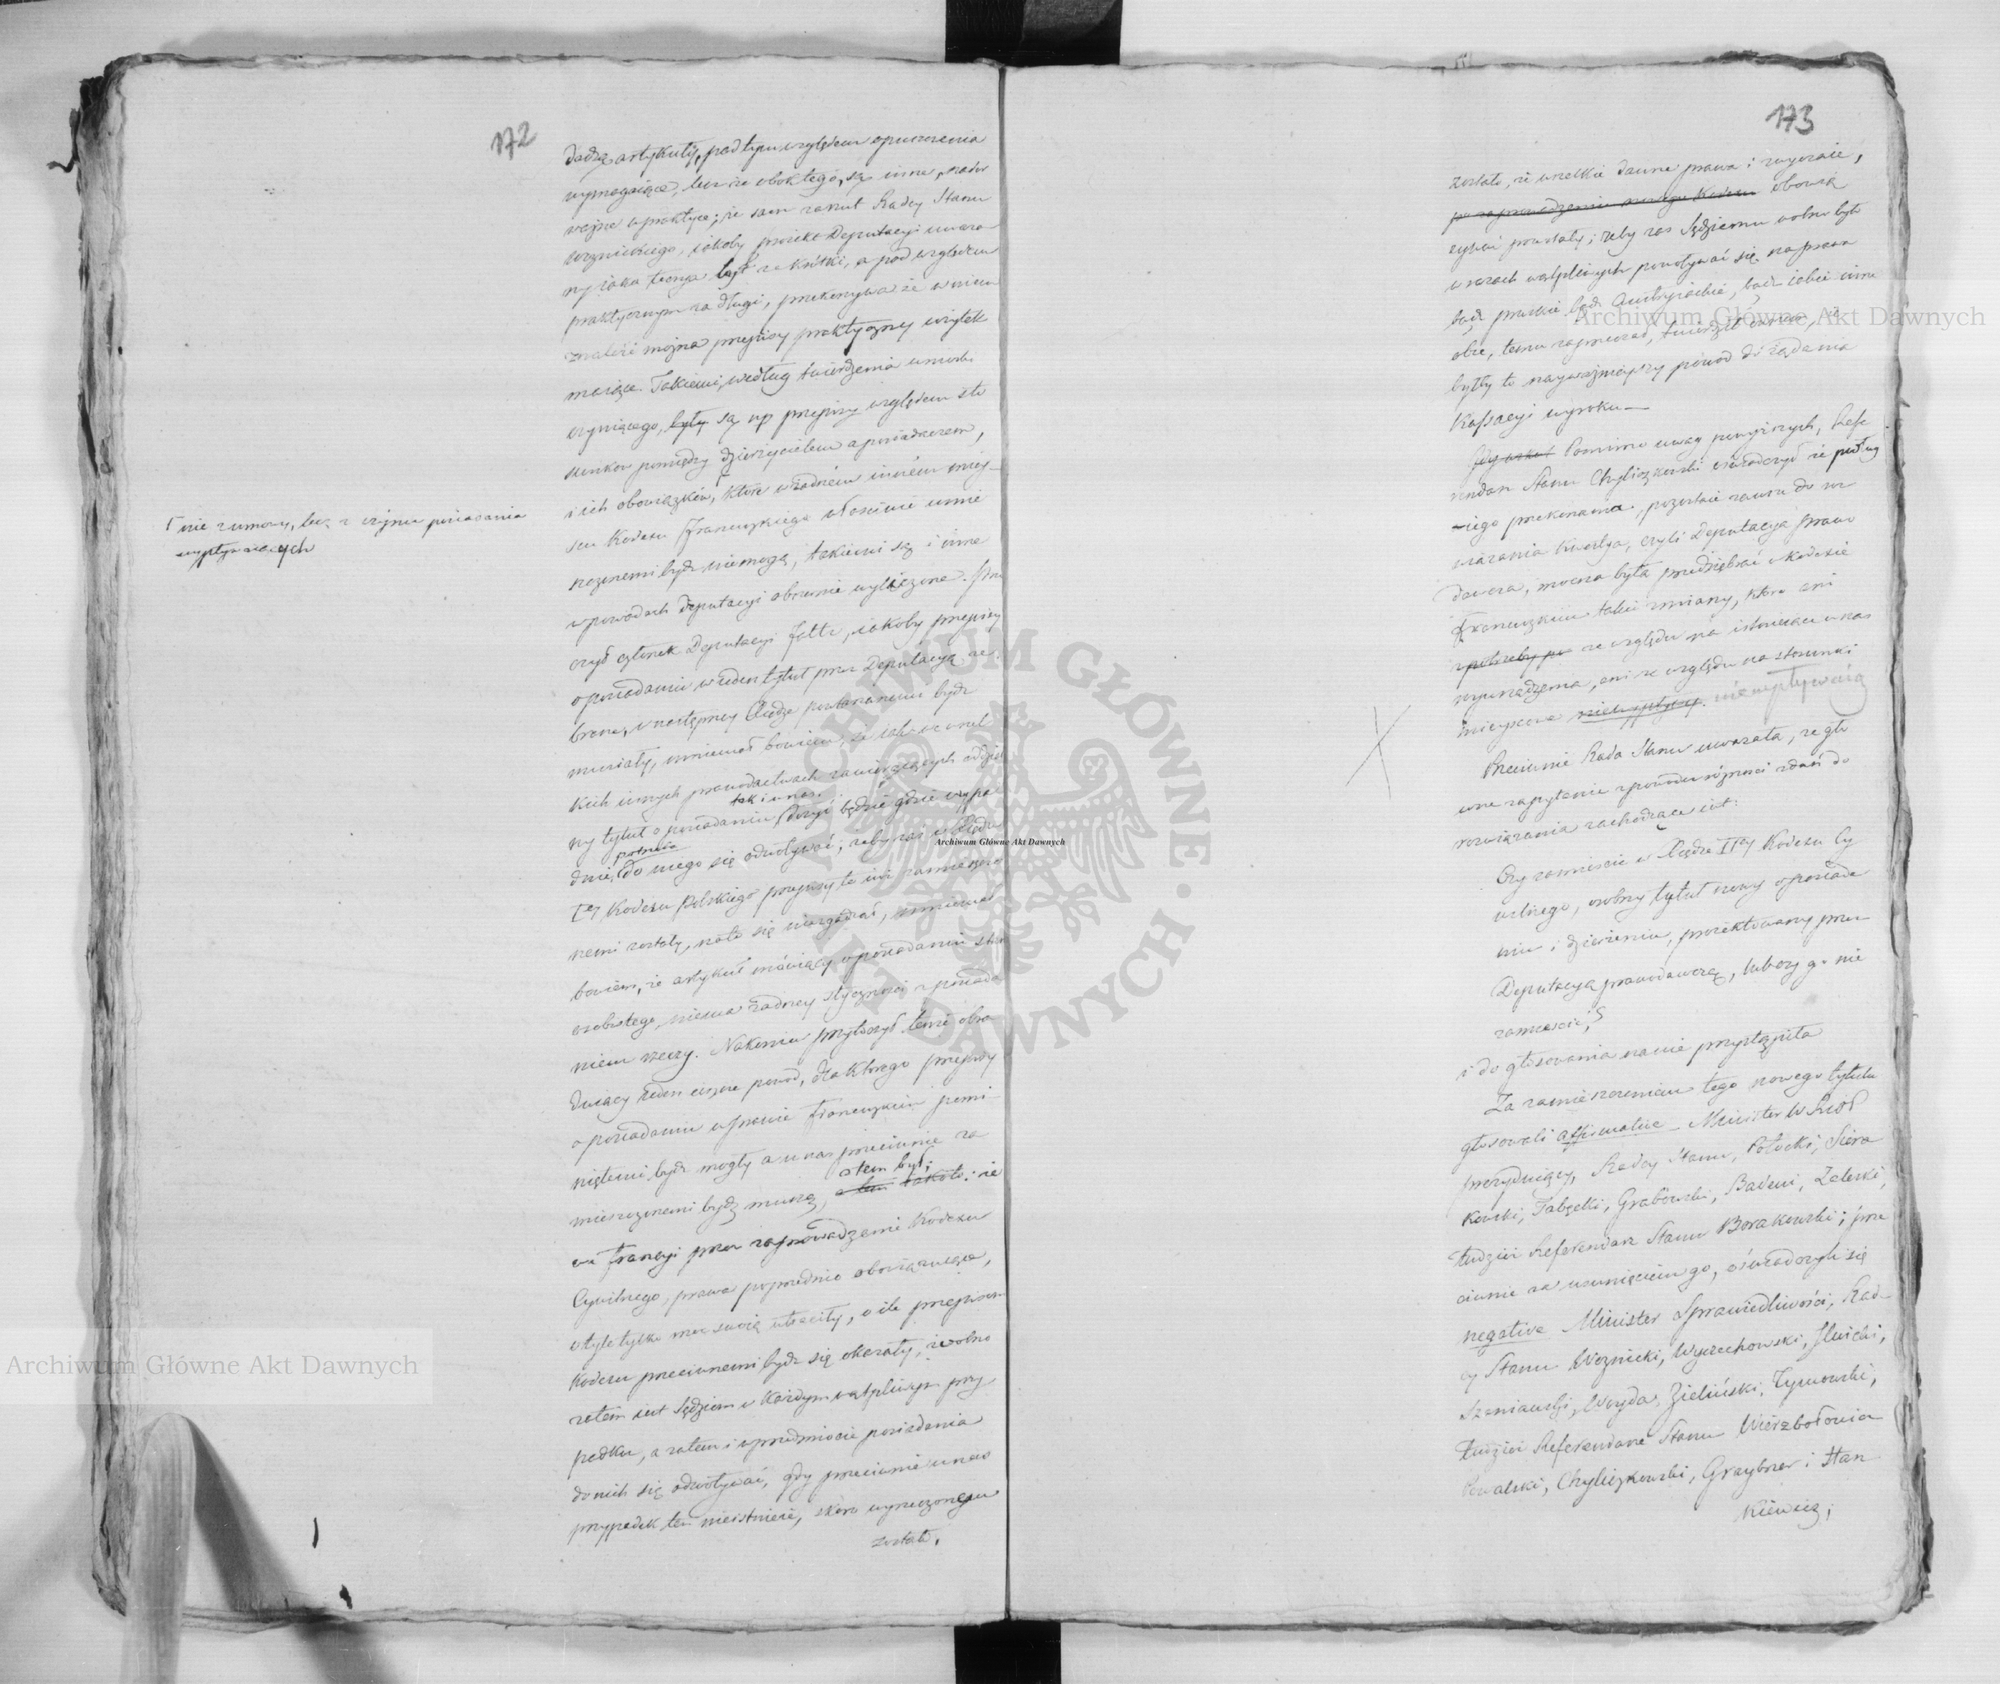 172
dadzą artykuły, pod tym względem opuszczenia
wymagaiące, lecz że obok tego, są inne, nader
ważne w praktyce; że sam zarzut Radcy Stanu
Woźnickiego, iakoby proiekt Deputacyi uważa
ny iako teorya był za krótki, a pod względem
praktycznym za długi, przekonywa że w nim
znaleźć można przepisy praktyczny użytek
maiące. Takiemi, według twierdzenia wniosek
czyniącego, były są np przepisy względem sto
sunków pomiędzy dzierżycielem a posiadaczem,
i ich obowiązków, które w żadnem innem miey-
scu Kodexu Francuzkiego właściwie umie
szczonemi bydź niemogą, takiemi są i inne
w powodach Deputacyi obszernie wyliczone. Prze
czył członek Deputacyi iakoby przepisy
o posiadaniu w ieden tytuł przez Deputacyą ze
brane, w następney Xiędze powtarzanemi bydź
musiały, mniemał bowiem, że iako we wszel
kich innych prawodactwach zawieraiących oddziel
ny tytuł o posiadaniu,
tak i u nas
dosyć będzie gdzie wypa
dnie,
potrzeba
do niego się odwoływać; żeby zaś w Xiędze
Iey Kodexu Polskiego przepisy te iuż zamieszczo
nemi zostały, na to się niezgadzał, mniemał
bowiem, że artykuł mówiący o posiadaniu stanu
osobistego, niema żadney styczności z posiada
niem rzeczy. Nakoniec przytoczył tenże obra
duiący ieden ieszcze powód, dla którego przepisy
o posiadaniu w prawie francuzkiem pomi-
niętemi bydź mogły a u nas przeciwnie za
mieszczonemi bydź muszą,
a tem był;
a tem że
we Francyi przez zaprowadzenie Kodexu
Cywilnego, prawa poprzednio obowiązuiące,
o tyle tylko moc swoią utraciły, o ile przepisom
Kodexu przeciwnemi bydź się okazały, że wolno
zatem iest Sędziom w każdym wątpliwym przy-
padku, a zatem i w przedmiocie posiadania
do nich się odwoływać, gdy przeciwnie u nas
przypadek ten nieistnieie, skoro wyrzeczonem
zostało,
Γ nie z umowy, lecz z czynu posiadania
wypływaiących
173
zostało, że wszelkie dawne prawa i zwyczaie,
po zaprowadzeniu nowego Kodexu obowią
zywać przestały; żeby zaś Sędziemu wolno było
w razach wątpliwych powoływać się na prawa
bądź pruskie bądź Austryiackie, bądź iakie inne
obce, temu zaprzeczał, twierdził owszem, że
byłby to nayważnieyszy powód do żądania
Kassacyi wyroku—
Pomimo uwag powyższych, Refe
rendarz Stanu Chyliczkowski oświadczył że podług
iego przekonania, pozostaie zawsze do roz
wiązania kwestya, czyli Deputacya Prawo
dawcza, mocna była przedsiębrać w Kodexie
Francuzkim takie zmiany, które ani
z potrzeby ze względu na istnieiące u nas
urządzenia, ani ze względu na stosunki
mieyscowe niewypływaią
Przeciwnie Rada Stanu uważała, że głó
wne zapytanie z powodu różności zdań do
rozwiązania zachodzące iest:
Czy zamieścić w Xiędze IIey Kodexu Cy
wilnego, osobny tytuł nowy o posiada
niu i dzierżeniu, proiektowany przez
Deputacyą prawodawczą, lub czy go nie
zamieścić?
i do głosowania na nie przystąpiła
Za zamieszczeniem tego nowego tytułu
głosowali affirmative — Minister W Środ
prezyduiący, Radcy Stanu, Potocki, Siera
kowski, Tabęcki, Grabowski, Badeni, Zaleski,
tudzież Referendarz Stanu Borakowski; prze
ciwnie za usunięciem go, oświadczyli się
negative Minister Sprawiedliwości, Rad-
cy Stanu Woźnicki, Wyczechowski, Hwicki,
Szaniawski, Woyda, Zieliński, Tymowski,
tudzież Referendarze Stanu Wierzbołowicz
Kowalski, Chyliczkowski, Graybner i Han
kiewicz;
Archiwum Główne Akt Dawnych
Archiwum Główne Akt Dawnych
Archiwum Główne Akt Dawnych
ARCHIWUM GŁÓWNE AKT DAWNYCH